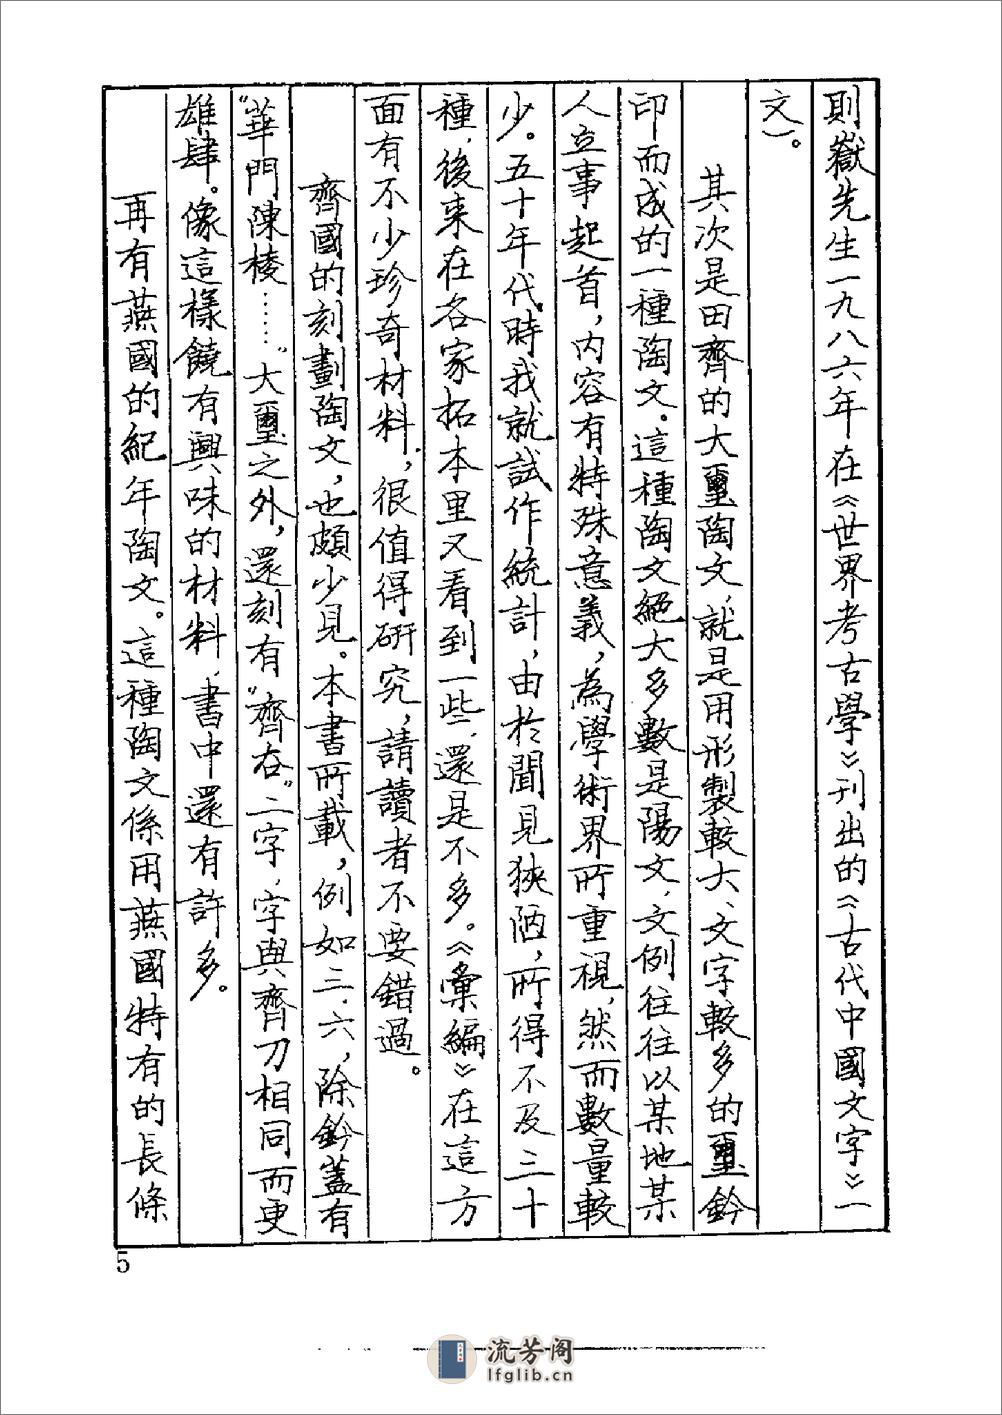 則嶽先生一九八六年在《世界考古學》刊出的《古代中國文字》一
文）。
其次是田齊的大璽陶文，就是用形製較大、文字較多的璽鈐
印而成的一種陶文。這種陶文絕大多數是陽文，文例往往以某地某
人立事起首，内容有特殊意義，為學術界所重視，然而數量較
少。五十年代時我就試作統計，由於聞見狹陋，所得不及三十
種，後来在各家拓本里又看到一些，還是不多。《彙編》在這方
面有不少珍奇材料，很值得研究，請讀者不要錯過。
齊國的刻劃陶文，也頗少見。本書所載，例如三．六，除鈐蓋有
“華門陳棱……”大璽之外，還刻有“齊右”二字，字與齊刀相同而更
雄肆。像這樣饒有興味的材料，書中還有許多。
再有燕國的紀年陶文。這種陶文係用燕國特有的長條
5
流芳阁
lfglib.cn